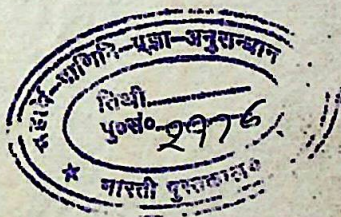 महर्षि-पाणिनि-प्रज्ञा-अनुसन्धान
तिथी
पु०सं० 2976
भारती पुस्तकालय